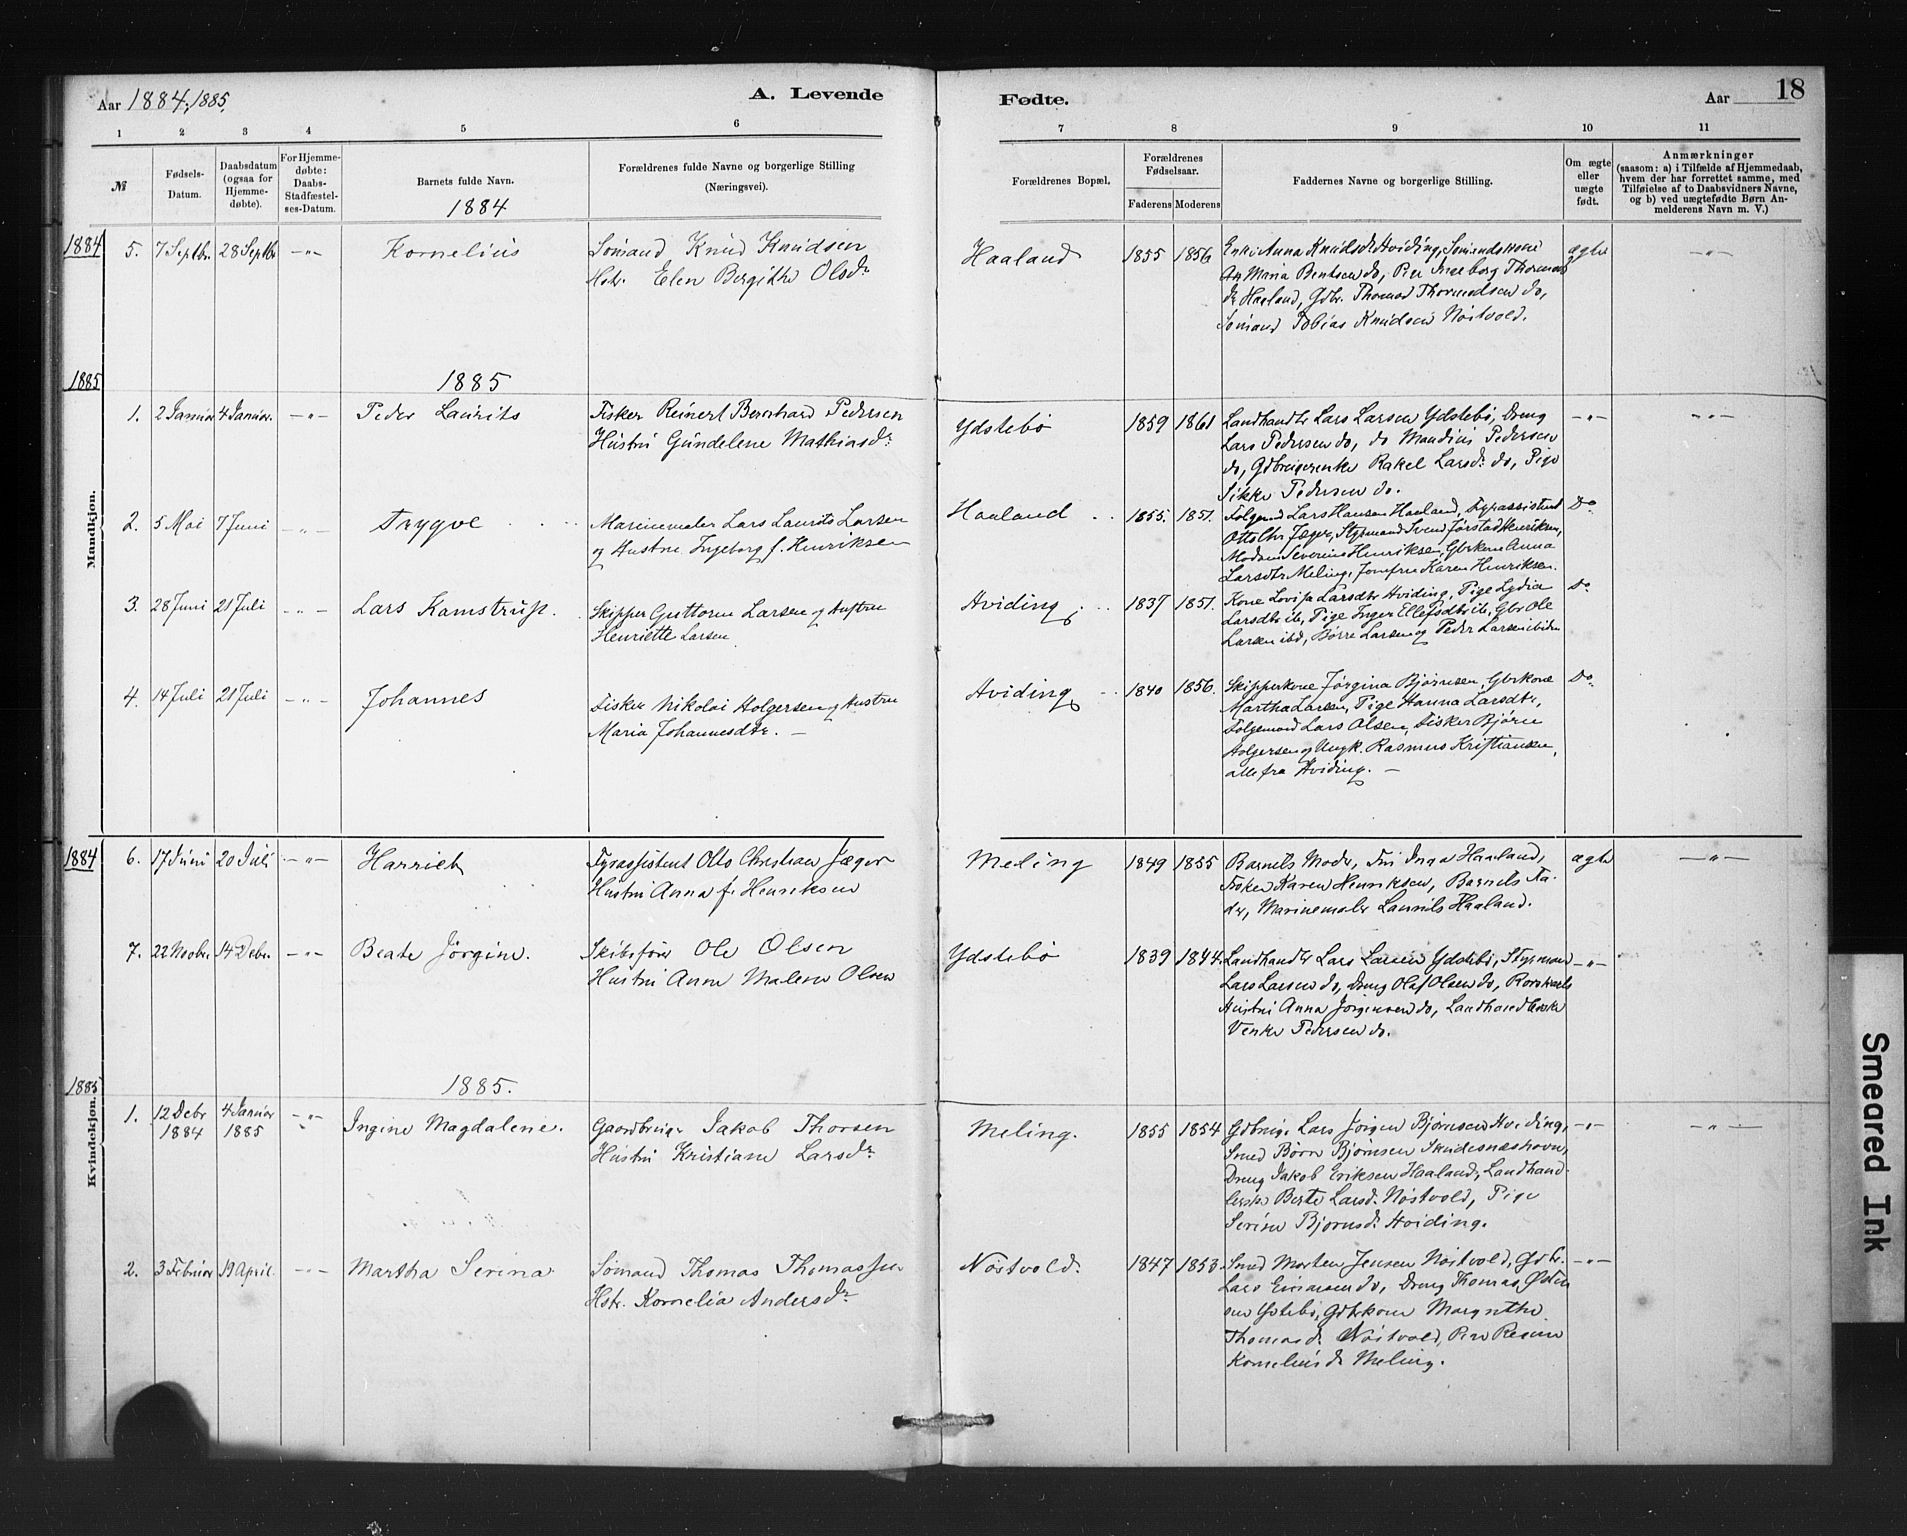 Aar 1884, 1885.
A. Levende
Fødte.
Aar
18
1 2 3 4 5 6 7 8 9 10 11
№
Fødsels-
Datum.
Daabsdatum
(ogsaa for
Hjemme-
døbte).
For Hjemme-
døbte:
Daabs-
Stadfæstel-
ses-Datum.
Barnets fulde Navn.
1884
Forældrenes fulde Navne og borgerlige Stilling
(Næringsvei).
Forældrenes Bopæl.
Forældrenes
Fødselsaar.
Faderens Moderens
Faddernes Navne og borgerlige Stilling.
Om ægte
eller
uægte
født.
Anmærkninger
(saasom: a) i Tilfælde af Hjemmedaab,
hvem der har forrettet samme, med
Tilføielse af to Daabsvidners Navne,
og b) ved uægtefødte Børn An-
melderens Navn m. V.)
Mandkjøn.
1884
5. 7 Septbr. 28 Septbr -"- Kornelius
Sømand Knud Knudsen
Hstr. Elen Bergithe Olsdr
Haaland 1855 1856
Enke Anna Knudsdr Hviding, Sømandskone
Maria Bentsen do, Pie Ingeborg Thormods
dr Haaland, Gdbr. Thomas Thormodsen do,
Sømand Tobias Knudsen Nøstvold.
ægte -"-
1885
1885
1. 2 Januar 4 Januar. -"- Peder Laurits
Fisker Reinert Bernhard Pedersen
Hustru Gundelene Mathiasdr
Ydstebø 1859 1861
Landhandlr Lars Larsen Ydstebø, Dreng
Lars Pedersen do, do Maudius Pedersen
do, Gdbrugerenke Rakel Larsdr do, Pige
Sikke Pedersen do.
-"- -"-
2. 5 Mai 7 Juni -"- Trygve
Marinemaler Lars Laurits Larsen
og Hustru Ingeborg f. Henriksen
Haaland 1855. 1851.
Folgemd Lars Hansen Haaland, Fyrassistent
Otto Chr Jæger, Styrmand Svend Jørstad Henriksen,
Madam Severine Henriksen, Gbrkone Anna
Larsdtr Meling, Jomfru Karen Henriksen.
Do
3. 28 Juni 21 Juli -"- Lars Kamstrup.
Skipper Guttorm Larsen og Hustru
Henriette Larsen
Hviding 1837 1851.
Kone Lovisa Larsdtr Hviding, Pige Lydia
Larsdtr ib, Pige Inger Ellefsdtr ib, Gbr Ole
Larsen ibd, Børre Larsen og Peder Larsen ibiden
Do
4. 14 Juli 21 Juli -"- Johannes
Fisker Nikolai Holgersen og Hustru
Maria Johannesdtr. —
Hviding 1840 1856.
Skipperkone Jørgina Bjørnsen, Gbrkone
Martha Larsen, Pige Hanna Larsdtr,
Folgemand Lars Olsen, Fisker Bjørn
Holgersen og Ungk. Rasmus Kristiansen,
alle fra Hviding. —
Do
Kvindekjøn.
1884
6. 17 Juni 20 Juli -"- Harriet
Fyrassistent Otto Christian Jæger
Hustru Anna f. Henriksen
Meling 1849 1855
Barnets Moder, Fru Inga Haaland,
Frøken Karen Henriksen, Barnets Fa-
der, Marinemaler Laurits Haaland.
ægte -"-
7. 22 Novbr. 14 Debr. -"- Beate Jørgine.
Skibsfører Ole Olsen
Hustru Anne Malene Olsen
Ydstebø 1839 1844.
Landhandlr Lars Larsen Ydstebø, Styrmand
Lars Larsen do, Dreng Olaf Olsen do,
Hustru Anna Jørgensen do, Landhandlerske
Venke Pedersen do.
-"-
1885
1885.
1. 12 Debr 1884 4 Januar 1885 -"- Ingine Magdalene.
Gaardbruger Jakob Thorsen
Hustru Kristiane Larsdr
Meling. 1855 1854
Gdbrug. Lars Jørgen Bjørnsen Hviding,
Smed Børre Bjørnsen Skudesneshavn,
Dreng Jakob Eriksen Haaland, Landhand-
lerske Berte Larsdr Nøstvold, Pige
Serine Bjørnsdr Hviding.
-"- -"-
2. 3 Februar 19 April. -"- Martha Serina
Sømand Thomas Thomassen
Hstr. Kornelia Andersdr
Nøstvold. 1847 1853.
Smed Morten Jensen Nøstvold, Gdbr.
Lars Einarsen do, Dreng Thomas Østen
sen Ydstebø, Gdbrkone Margrethe
Thomasdr Nøstvold, Pie Regine
Korneliusdr Meling.
-"-
Smeared Ink